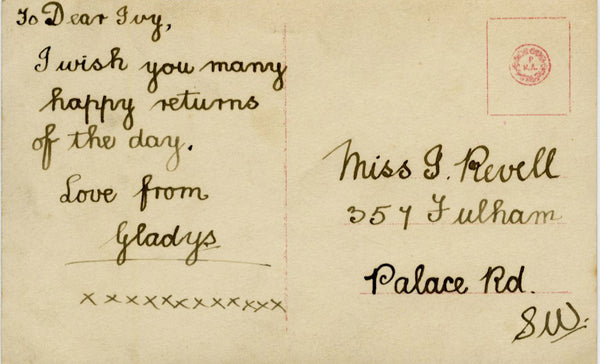 To Dear Ivy,
I wish you many
happy returns
of the day.
Love from
Gladys
x x x x x x x x x x x x x
Miss I. Revell
357 Fulham
Palace Rd.
SW.